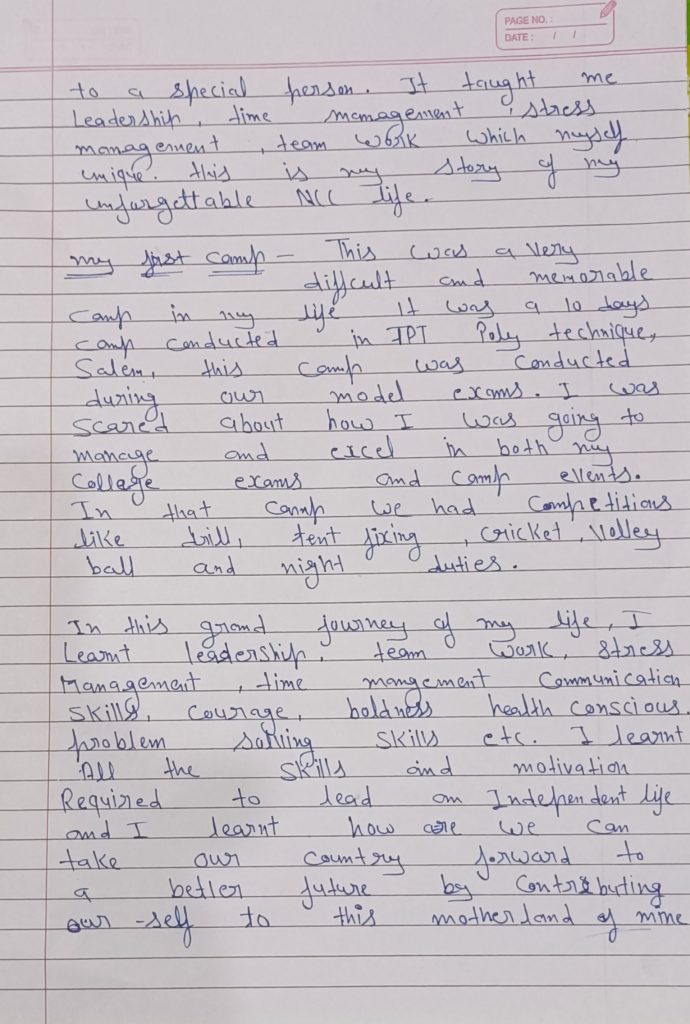 PAGE NO.:
DATE: / /
to a special person. It taught me
Leadership, time management, stress
management, team work which myself
unique. this is my story of my
unforgettable NCC life.
my first camp - This was a very
difficult and memorable
camp in my life It was a 10 days
camp conducted in TPT Poly technique,
Salem, this camp was conducted
during our model exams. I was
scared about how I was going to
manage and excel in both my
Collage exams and camp events.
In that camp we had Competitions
like drill, tent fixing, cricket, Volley
ball and night duties.
In this grand journey of my life, I
Learnt leadership, team work, stress
Management, time mangement Communication
skills, courage, boldness health conscious.
problem solving skills etc. I learnt
All the skills and motivation
Required to lead an Independent life
and I learnt how are we can
take our country forward to
a better future by Contributing
our-self to this motherland of mine